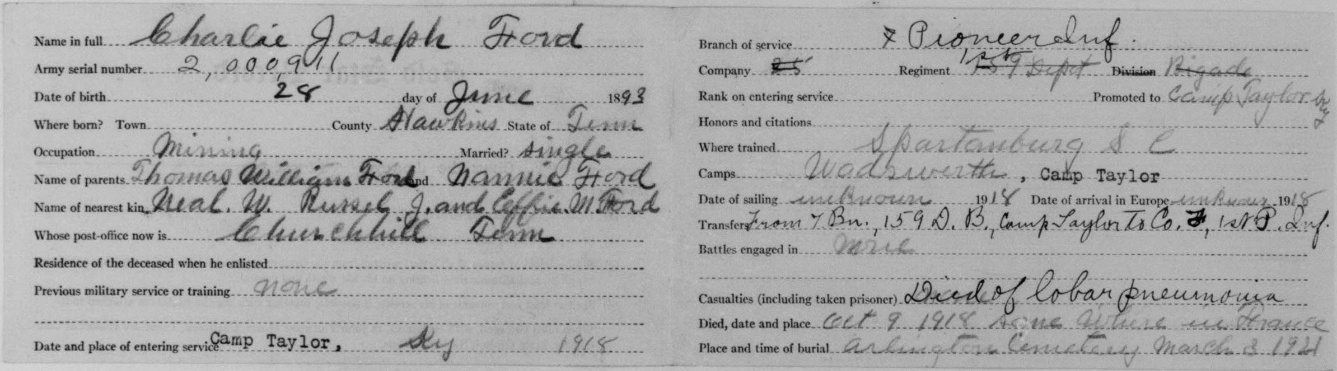 Name in full Charlie Joseph Ford
Army serial number 2,000911
Date of birth 28 day of June 1893
Where born? Town County Hawkins State of Tenn
Occupation Mining Married? single
Name of parents Thomas William Ford and Nannie Ford
Name of nearest kin Neal. W. Russel J. and Effie. M Ford
Whose post-office now is Churchhill Tenn
Residence of the deceased when he enlisted
Previous military service or training none
Date and place of entering service Camp Taylor, Ky 1918
Branch of service Pioneer Inf.
Company 25 Regiment 159 Depot Division Brigade
Rank on entering service Promoted to Camp Taylor Ky
Honors and citations
Where trained Spartanburg S C
Camps Wadsworth, Camp Taylor
Date of sailing unknown 1918 Date of arrival in Europe unknown 1918
Transfers From 7 Bn., 159 D. B., Camp Taylor to Co. F, 1st P. Inf.
Battles engaged in none
Casualties (including taken prisoner) Died of lobar pneumonia
Died, date and place Oct 9 1918 some Where in France
Place and time of burial Arlington Cemetery March 3 1921